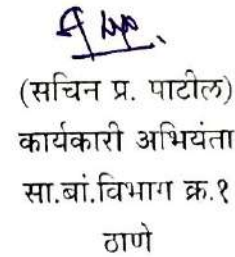 (सचिन प्र. पाटील)
कार्यकारी अभियंता
सा.बां.विभाग क्र.१
ठाणे